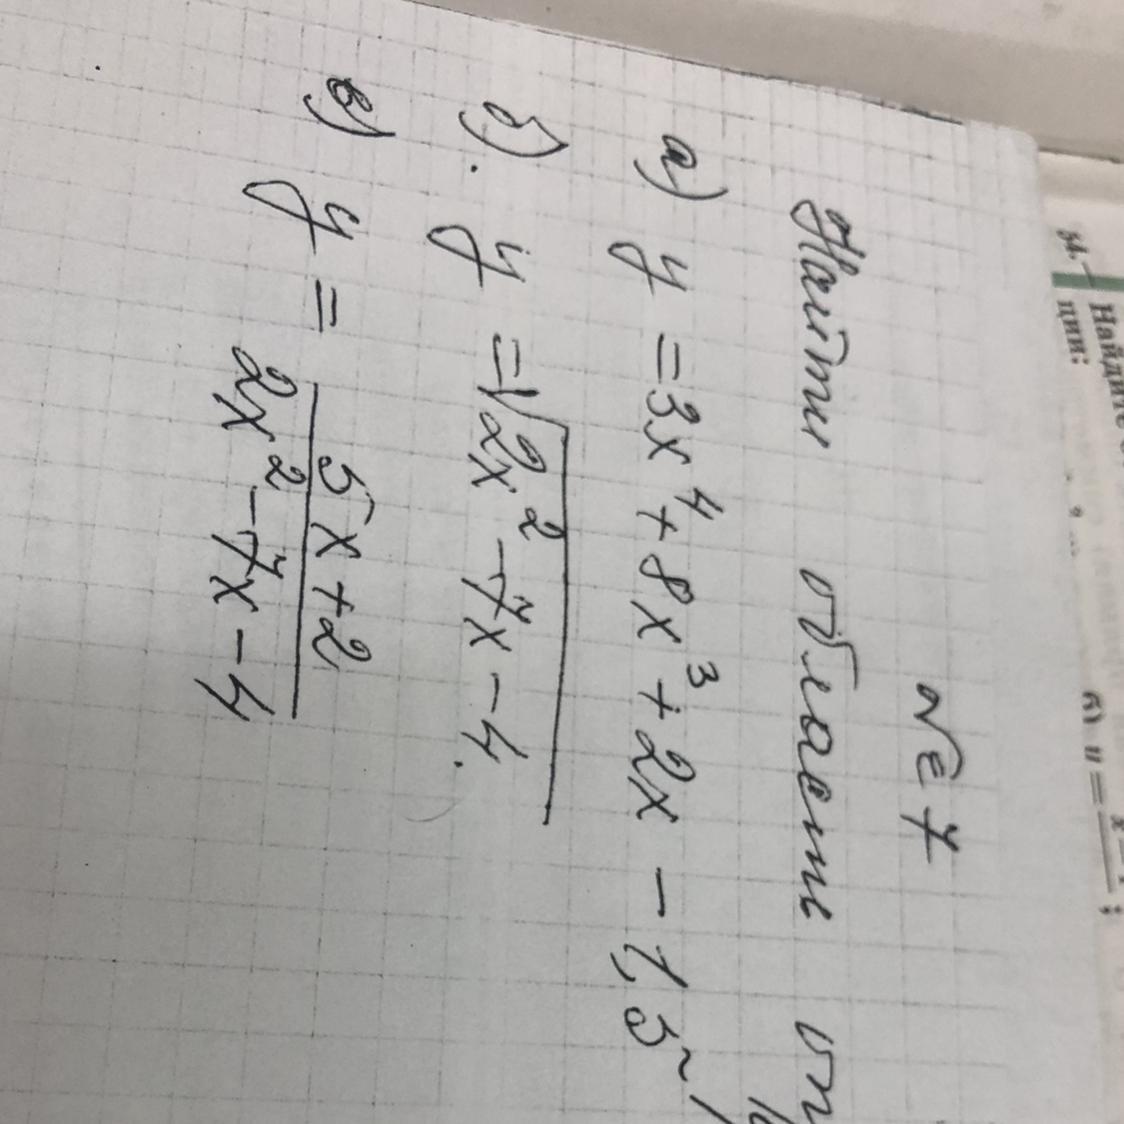 №7
Найти область оп
а) y = 3x⁴ + 8x³ + 2x - 1,5
б). y = √(2x² - 7x - 4)
в) y = (5x + 2)/(2x² - 7x - 4)
54.
Найдите
ции: